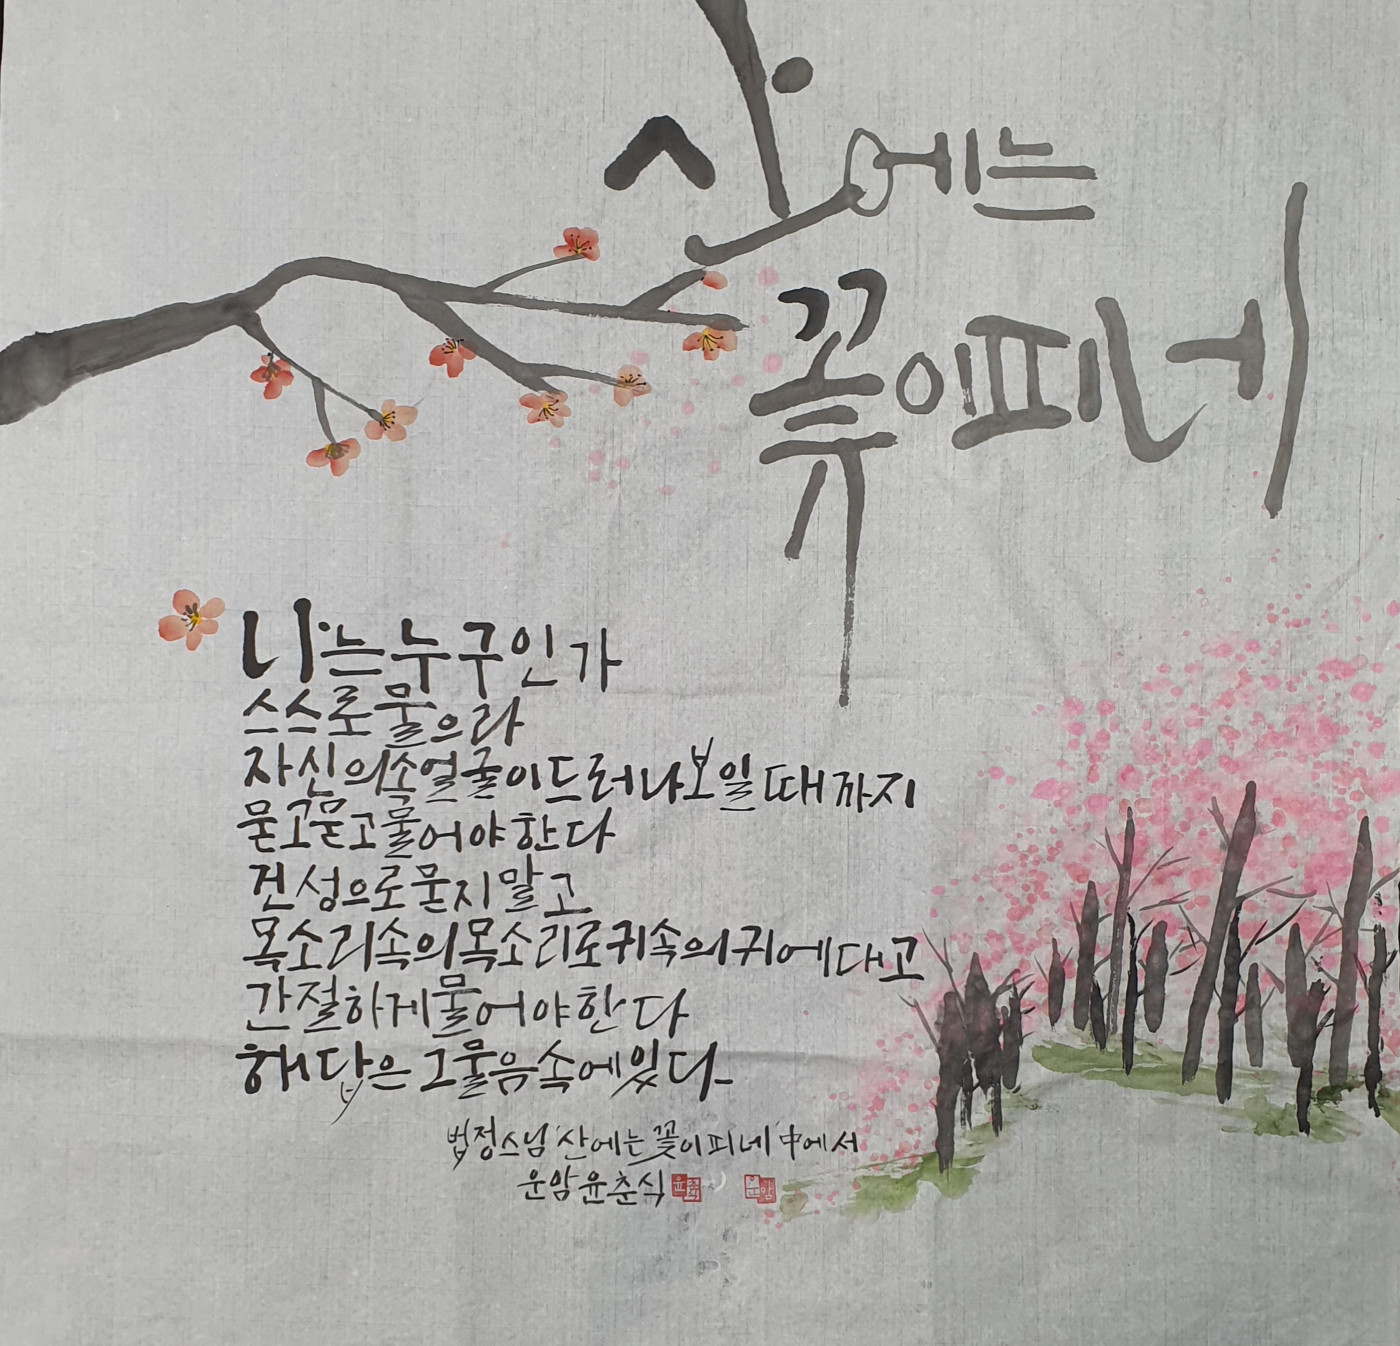 산에는
꽃이피네
나는누구인가
스스로물으라
자신의속얼굴이드러나보일때까지
묻고묻고물어야한다
건성으로묻지말고
목소리속의목소리로귀속의귀에대고
간절하게물어야한다
해답은그물음속에있다
법정스님'산에는꽃이피네'中에서
운암윤춘식